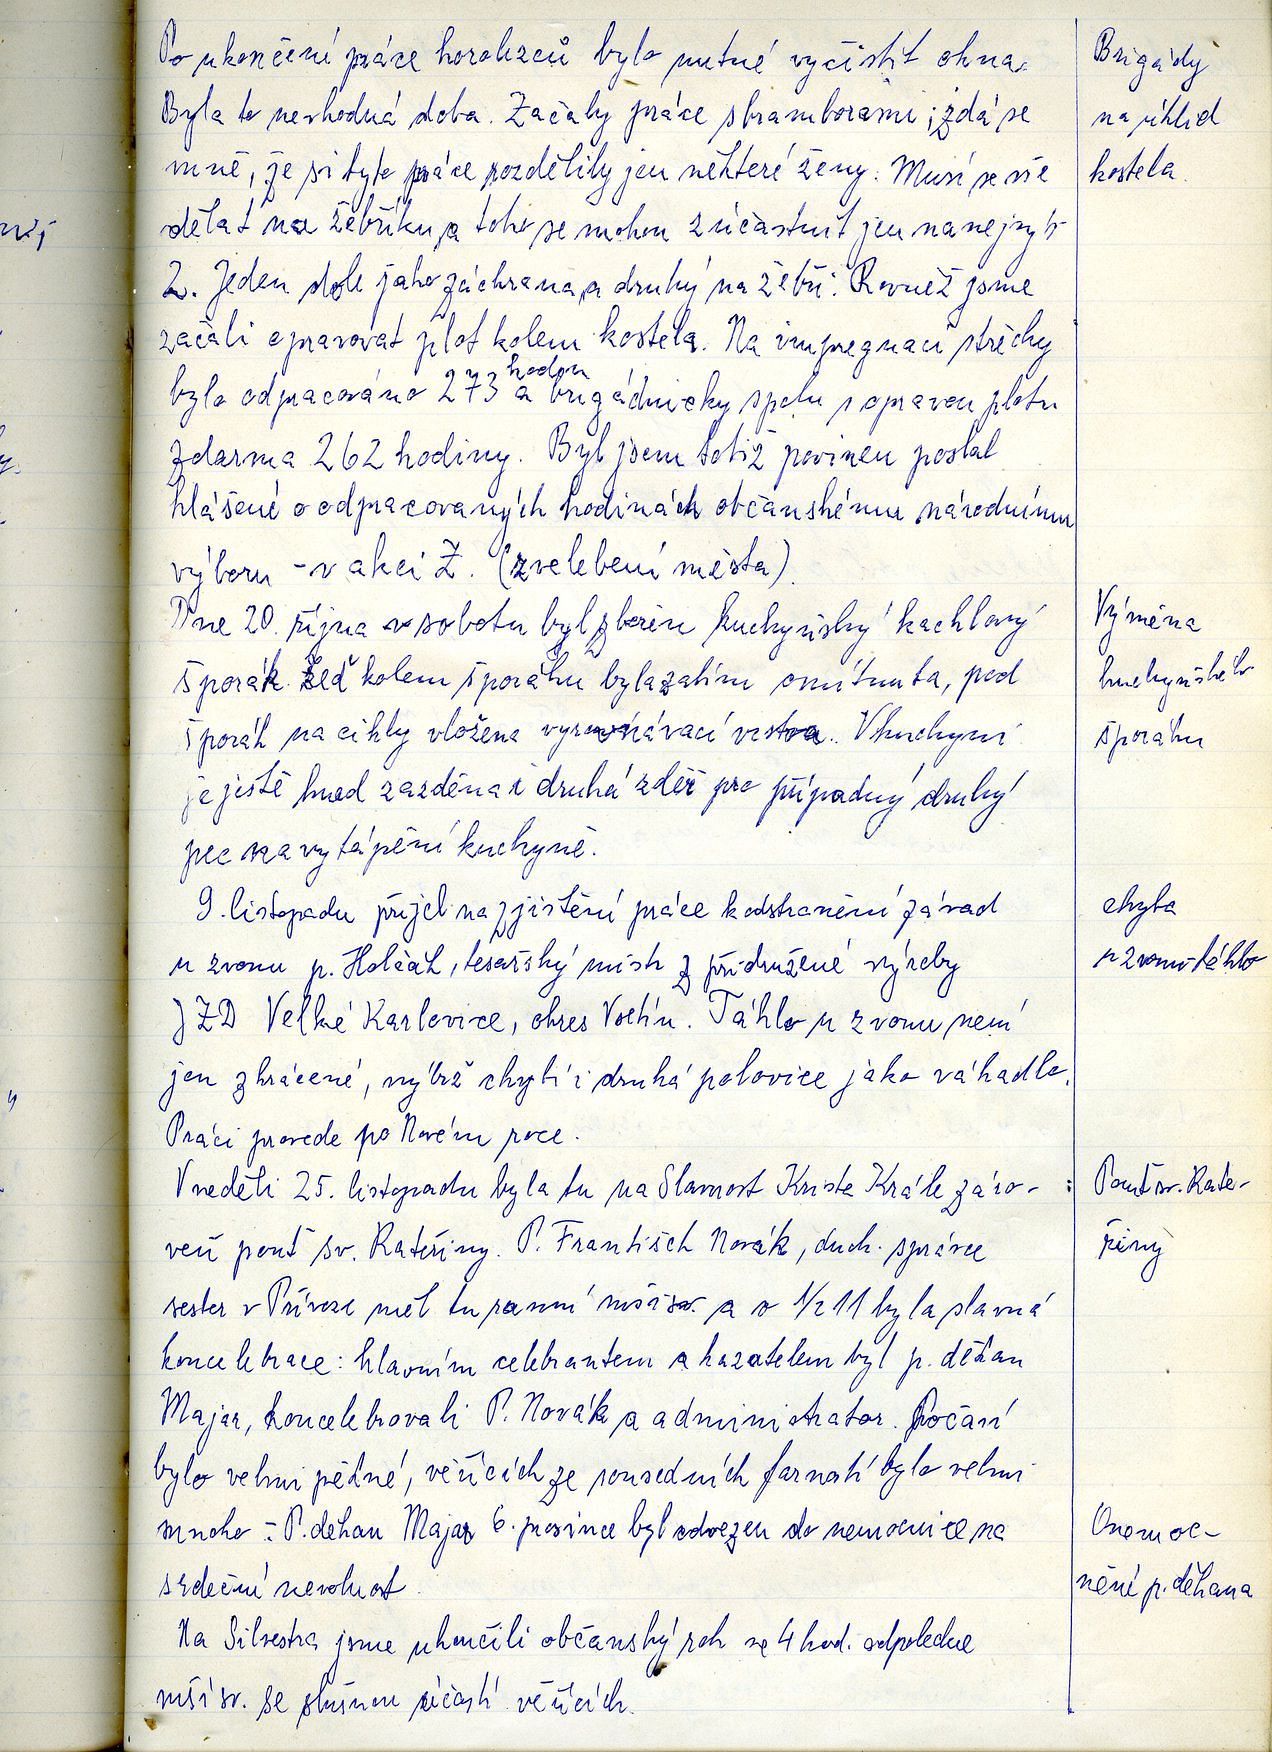 Po ukončení práce horolezců bylo nutné vyčistit okna.
Byla to nevhodná doba. Začaly práce s bramborami; zdá se
mně, že si tyto práce rozdělily jen některé ženy. Musí se vše
dělat na žebříku, a toho se mohou zúčastnit jen nanejvýš
2. Jeden dole jako záchrana, a druhý na žebři. Rovněž jsme
začali opravovat plot kolem kostela. Na impregnaci střechy
hodin
bylo odpracováno 273 a brigádnicky spolu s opravou plotu
zdarma 262 hodiny. Byl jsem totiž povinen poslat
hlášené o odpracovaných hodinách občanskému národnímu
výboru - v akci Z. (zvelebení města).
Dne 20. října v sobotu byl zbořen kuchyňský kachlový
šporák. Zeď kolem šporáku byla zatím omítnuta, pod
šporák na cihly vložena vyrovnávací vrstva. V kuchyni
je jistě hned zazděna i druhá zděř pro případný druhý
pec na vytápění kuchyně.
9. listopadu přijel na zjištění práce k odstranění závad
u zvonu p. Holčák, tesařský mistr z přidružené výroby
JZD Velké Karlovice, okres Vsetín. Táhlo u zvonu není
jen zkrácené, nýbrž chybí i druhá polovice jako váhadlo.
Práci provede po Novém roce.
V neděli 25. listopadu byla tu na Slavnost Krista Krále záro-
veň pouť sv. Kateřiny. P. František Novák, duch. správce
sester v Přívoze měl tu ranní mši sv. a v 1/2 11 byla slavná
koncelebrace: hlavním celebrantem a kazatelem byl p. děkan
Majer, koncelebrovali P. Novák a administrator. Počasí
bylo velmi pěkné, věřících ze sousedních farností bylo velmi
mnoho - P. děkan Majer 6. prosince byl odvezen do nemocnice na
srdeční nevolnost.
Na Silvestra jsme ukončili občanský rok ve 4 hod. odpoledne
mší sv. se slušnou účastí věřících.
Brigády
na úklid
kostela
Výměna
kuchyňského
šporáku
chyba
u zvonu-táhlo
Pouť sv. Kate-
řiny
Onemoc-
nění p. děkana